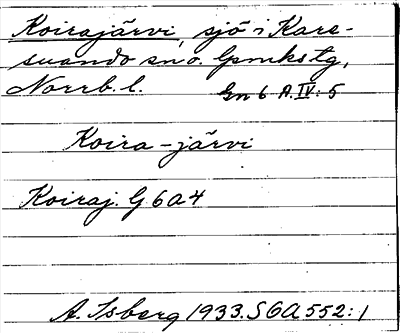 Koirajärvi, sjö i Kare-
suando sn o. lpmkstg,
Norrb. l. Gn 6 A.IV:5
Koira-järvi
Koiraj. G 6a4
A. Isberg 1933. SGA 552:1